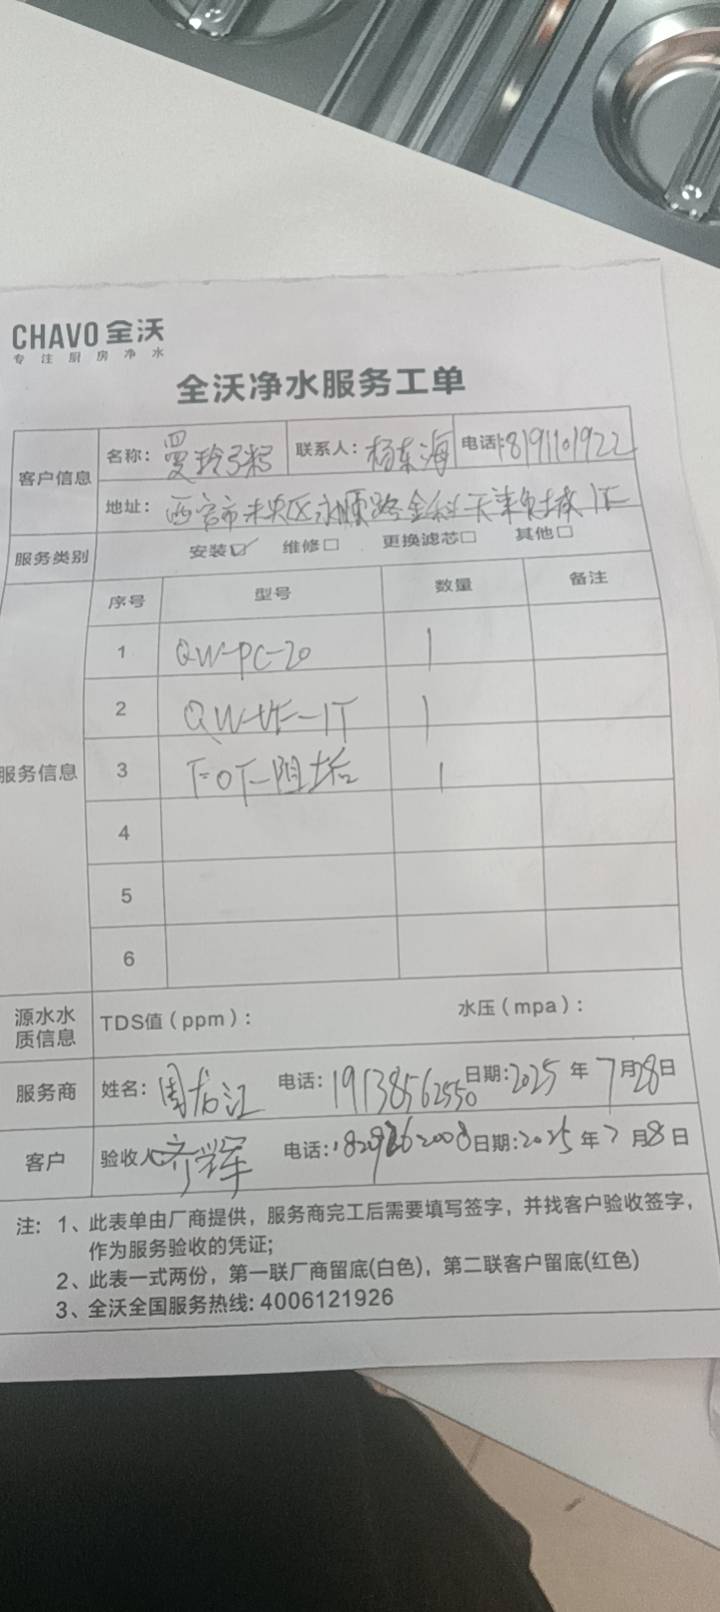 CHAVO 全沃
专注厨房净水
全沃净水服务工单
客户信息 名称：曼玲粥 联系人：杨东海 电话：18191101922
地址： 西安市未央区永顺路金科天 1F
服务类别 安装☑ 维修□ 更换滤芯□ 其他□
服务信息 序号 型号 数量 备注
1 QW-PC-20 1
2 QW-UF-1T 1
3 阻垢 1
4
5
6
源水水质信息 TDS值（ppm）： 水压（mpa）：
服务商 姓名：周龙江 电话：19138562550 日期：2025年7月28日
客户 验收人：齐辉 电话： 日期：2025年7月8日
注： 1、此表单由厂商提供，服务商完工后需要填写签字，并找客户验收签字，
作为服务验收的凭证；
2、此表一式两份，第一联厂商留底(白色)，第二联客户留底(红色)
3、全沃全国服务热线：4006121926